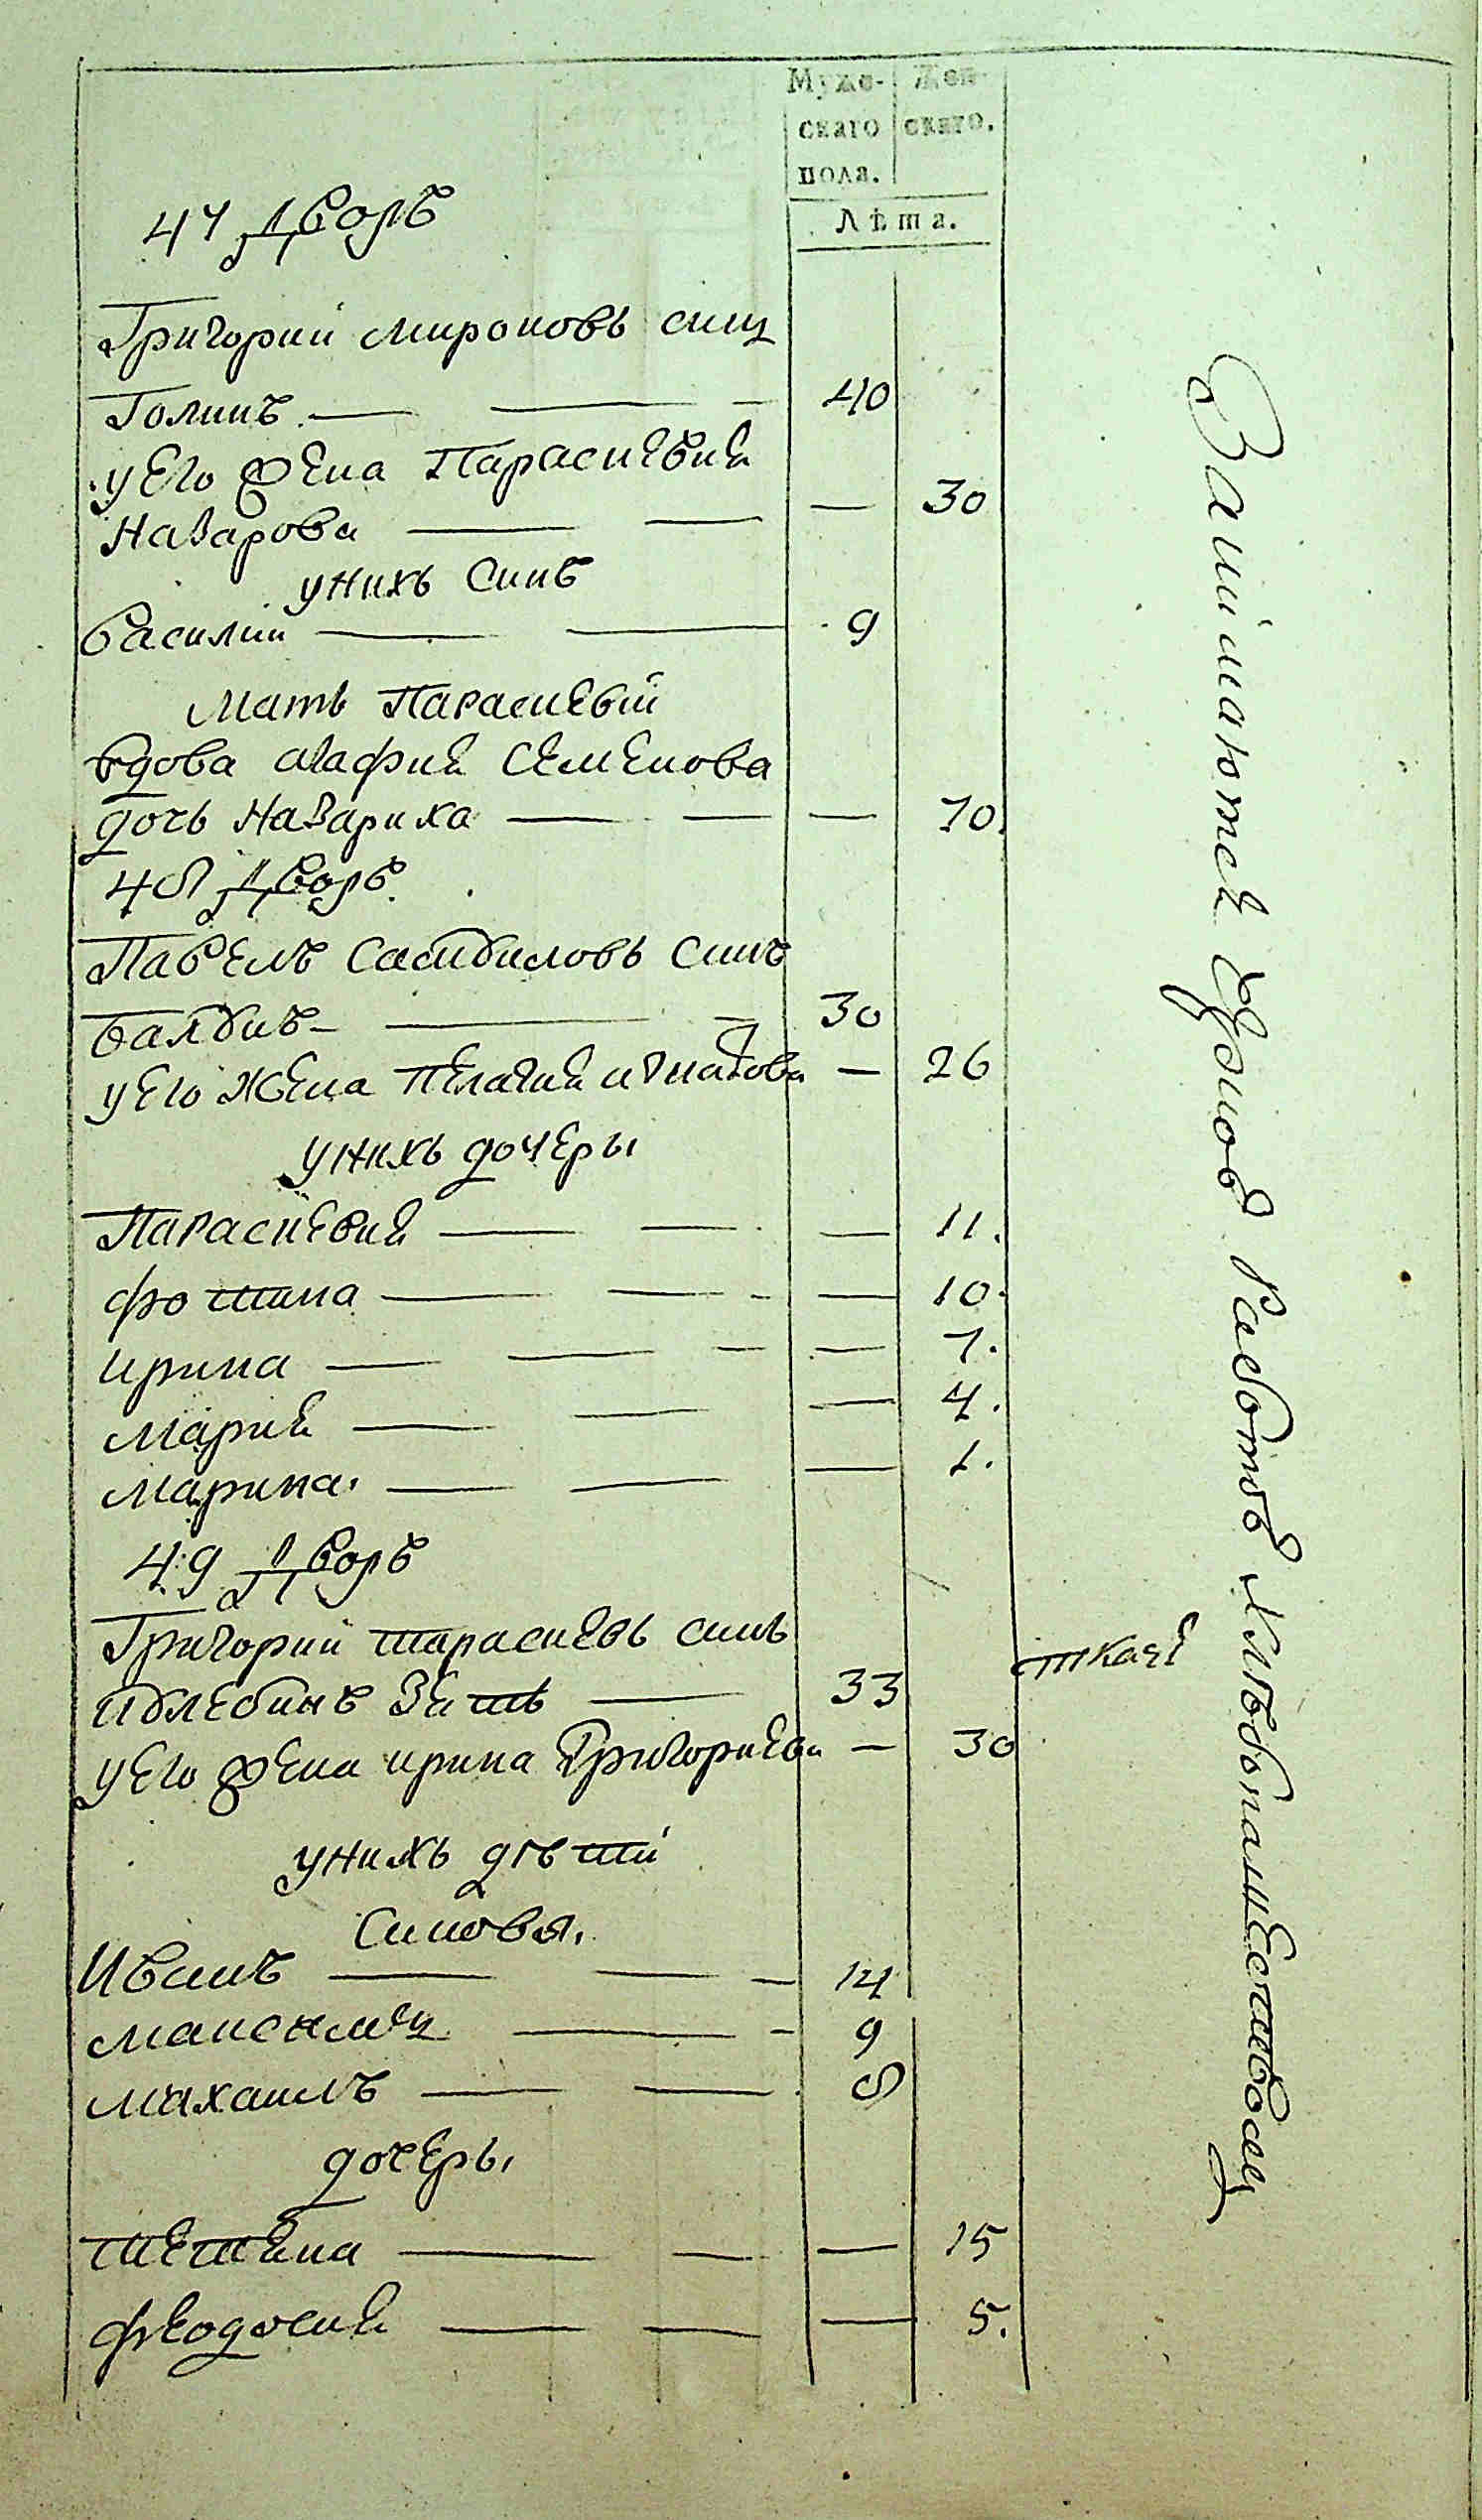 Муже- Жен-
скаго скаго.
пола.
Лѣта.
47 Дворъ
Григории мироновъ синъ
Голинъ — — — 40
у его жена Параскевия
Назарова — — — 30
у нихъ Синъ
василии — — 9
Мать Параскевіи
вдова агафия Семенова
дочь Назариха — — — 70.
48 Дворъ.
Павелъ Самоиловъ Синъ
— — — 30
у его жена Пелагия игнатова — 26
у нихъ дочеры
Параскевия — — — 11.
фотина — — — — 10.
ирина — — — — 7.
мария — — — 4.
марина. — — — 1.
49 Дворъ
Григории тарасиевъ синъ
зять — 33 ткачъ
у его жена ирина Григориева — 30
у нихъ дѣти
Синовя.
Иванъ — — — 14
максимъ — — 9
михаилъ — — 8
дочеры
тетяна — — — 15
феодосия — — — 5.
Занимаются кромѣ работъ хлѣбопашествомъ